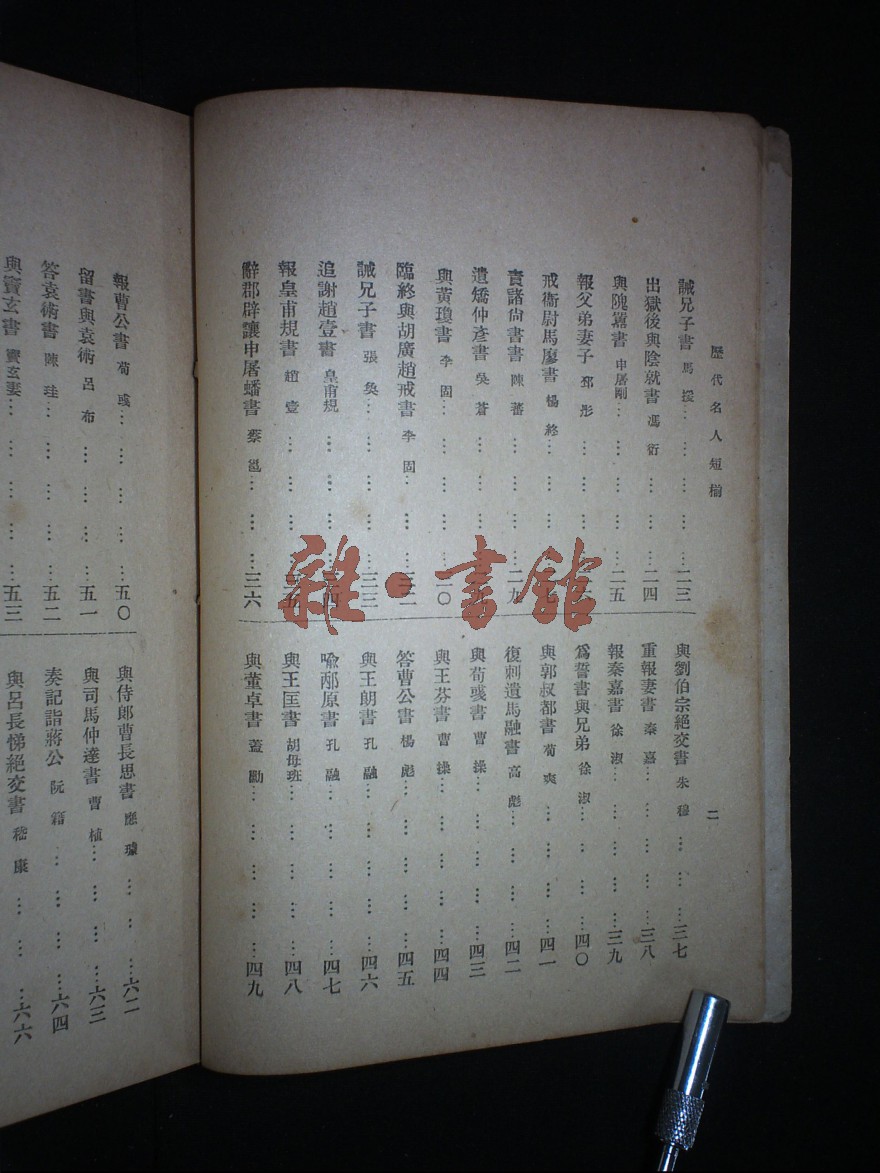 歷代名人短楜
二
誡兄子書 馬援……二三
出獄後與陰就書 馮衍……二四
與隗囂書 申屠剛……二五
報父弟妻子 邳彤……
戒衞尉馬廖書 楊終……
責諸尙書書 陳蕃……二九
遺矯仲彥書 吳蒼……
與黃瓊書 李固……
臨終與胡廣趙戒書 李固……
誡兄子書 張奐……三三
追謝趙壹書 皇甫規……三四
報皇甫規書 趙壹……三五
辭郡辟讓申屠蟠書 蔡邕……三六
與劉伯宗絕交書 朱穆……三七
重報妻書 秦嘉……三八
報秦嘉書 徐淑……三九
爲誓書與兄弟 徐淑……四〇
與郭叔都書 荀爽……四一
復刺遺馬融書 高彪……四二
與荀彧書 曹操……四三
與王芬書 曹操……四四
答曹公書 楊彪……四五
與王朗書 孔融……四六
喩邴原書 孔融……四七
與王匡書 胡母班……四八
與董卓書 蓋勳……四九
報曹公書 荀彧……五〇
留書與袁術 呂布……五一
答袁術書 陳珪……五二
與竇玄書 竇玄妻……五三
與侍郞曹長思書 應璩……六二
與司馬仲達書 曹植……六三
奏記詣蔣公 阮籍……六四
與呂長悌絕交書 嵇康……六六
雜·書館